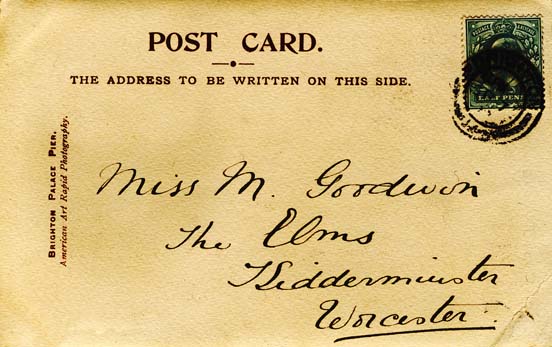 POST CARD.
THE ADDRESS TO BE WRITTEN ON THIS SIDE.
BRIGHTON PALACE PIER.
American Art Rapid Photography.
HALF PENNY
Miss M. Goodwin
The Elms
Kidderminster
Worcester.